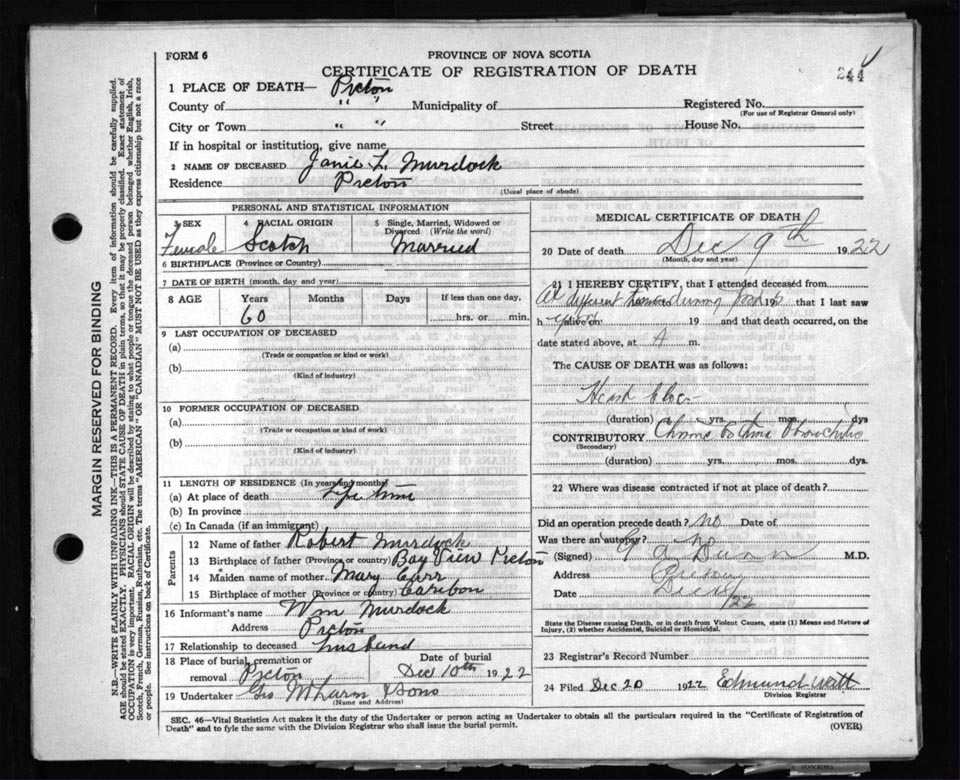 FORM 6
PROVINCE OF NOVA SCOTIA
CERTIFICATE OF REGISTRATION OF DEATH
244
1 PLACE OF DEATH— Pictou
County of " " Municipality of Registered No.
(For use of Registrar General only)
City or Town " " Street House No.
If in hospital or institution, give name
2 NAME OF DECEASED Janie L. Murdock
Residence Pictou
(Usual place of abode)
PERSONAL AND STATISTICAL INFORMATION
3 SEX Female
4 RACIAL ORIGIN Scotch
5 Single, Married, Widowed or Divorced (Write the word) Married
6 BIRTHPLACE (Province or Country)
7 DATE OF BIRTH (month, day and year)
8 AGE Years Months Days If less than one day,
60 hrs. or min.
9 LAST OCCUPATION OF DECEASED
(a)
(Trade or occupation or kind or work)
(b)
(Kind of industry)
10 FORMER OCCUPATION OF DECEASED
(a)
(Trade or occupation or kind of work)
(b)
(Kind of industry)
11 LENGTH OF RESIDENCE (In years and months)
(a) At place of death Life time
(b) In province
(c) In Canada (if an immigrant)
Parents
12 Name of father Robert Murdock
13 Birthplace of father (Province or country) Bay View Pictou
14 Maiden name of mother Mary Carr
15 Birthplace of mother (Province or country) Caribou
16 Informant's name Wm Murdock
Address Pictou
17 Relationship to deceased husband
18 Place of burial, cremation or removal Pictou
Date of burial Dec 10th 1922
19 Undertaker Geo & Sons
(Name and Address)
MEDICAL CERTIFICATE OF DEATH
20 Date of death Dec 9th 1922
(Month, day and year)
21 I HEREBY CERTIFY, that I attended deceased from
At different during past 19 that I last saw
h alive on 19 and that death occurred, on
date stated above, at A m.
The CAUSE OF DEATH was as follows:
Heart
(duration) yrs. mos. dys.
CONTRIBUTORY
(Secondary)
(duration) yrs. mos. dys.
22 Where was disease contracted if not at place of death?
Did an operation precede death? No Date of
Was there an autopsy? No
(Signed) G A Dunn M.D.
Address Pictou
Date Dec /22
State the Disease causing Death, or in death from Violent Causes, state (1) Means and Nature of
Injury, (2) whether Accidental, Suicidal or Homicidal.
23 Registrar's Record Number
24 Filed Dec 20 1922 Edmund Watt
Division Registrar
SEC. 46—Vital Statistics Act makes it the duty of the Undertaker or person acting as Undertaker to obtain all the particulars required in the "Certificate of Registration of
Death" and to fyle the same with the Division Registrar who shall issue the burial permit. (OVER)
MARGIN RESERVED FOR BINDING
N.B.—WRITE PLAINLY WITH UNFADING INK—THIS IS A PERMANENT RECORD. Every item of information should be carefully supplied.
AGE should be stated EXACTLY. PHYSICIANS should STATE CAUSE OF DEATH in plain terms, so that it may be properly classified. Exact statement of
OCCUPATION is very important. RACIAL ORIGIN will be described by stating to what people or tongue the deceased person belonged, whether English, Irish,
Scotch, French, German, Russian, Ruthenian, etc. The terms "AMERICAN" OR "CANADIAN" MUST NOT BE USED as they express citizenship but not a race
or people. See instructions on back of Certificate.
(OVER)